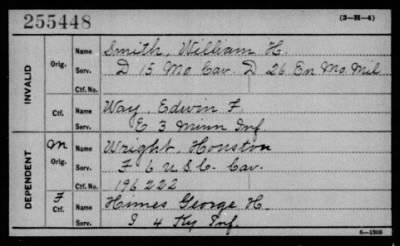 255448
(3—H—4)
INVALID
Orig.
Name Smith, William H.
Serv. D 15 Mo Cav. D 26 En Mo. Mil
Ctf. No.
Ctf.
Name Way, Edwin F.
Serv. E 3 Minn Inf.
DEPENDENT
M
Orig.
Name Wright, Houston
Serv. F 6 U.S.C. Cav.
Ctf. No. 196222
F
Ctf.
Name Himes George H.
Serv. I 4 Ky Inf.